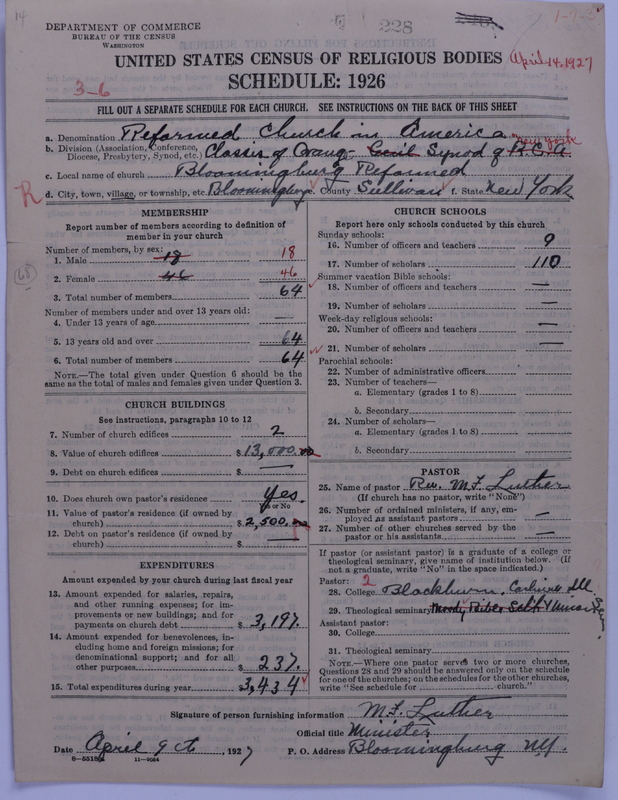 14
228
1-7-3
DEPARTMENT OF COMMERCE
BUREAU OF THE CENSUS
WASHINGTON
UNITED STATES CENSUS OF RELIGIOUS BODIES
April 14, 1927
SCHEDULE: 1926
3-6
FILL OUT A SEPARATE SCHEDULE FOR EACH CHURCH. SEE INSTRUCTIONS ON THE BACK OF THIS SHEET
a. Denomination Reformed Church in America
b. Division (Association, Conference, Diocese, Presbytery, Synod, etc.) Classis of Orange Synod of R.C.A. New York
c. Local name of church Bloomingburg Reformed
R d. City, town, village, or township, etc. Bloomingburg e. County Sullivan f. State New York
MEMBERSHIP
Report number of members according to definition of
member in your church
Number of members, by sex:
1. Male 18 18
2. Female 46 46
3. Total number of members 64
Number of members under and over 13 years old:
4. Under 13 years of age —
5. 13 years old and over 64
6. Total number of members 64
NOTE.—The total given under Question 6 should be the
same as the total of males and females given under Question 3.
CHURCH BUILDINGS
See instructions, paragraphs 10 to 12
7. Number of church edifices 2
8. Value of church edifices $13,000.00
9. Debt on church edifices $ —
10. Does church own pastor's residence Yes.
Yes or No
11. Value of pastor's residence (if owned by
church) $2,500.00
12. Debt on pastor's residence (if owned by
church) $ —
EXPENDITURES
Amount expended by your church during last fiscal year
13. Amount expended for salaries, repairs,
and other running expenses; for im-
provements or new buildings; and for
payments on church debt $3,197.
14. Amount expended for benevolences, in-
cluding home and foreign missions; for
denominational support; and for all
other purposes $237.
15. Total expenditures during year $3,434
CHURCH SCHOOLS
Report here only schools conducted by this church
Sunday schools:
16. Number of officers and teachers 9
17. Number of scholars 110
Summer vacation Bible schools:
18. Number of officers and teachers —
19. Number of scholars —
Week-day religious schools:
20. Number of officers and teachers —
21. Number of scholars —
Parochial schools:
22. Number of administrative officers
23. Number of teachers—
a. Elementary (grades 1 to 8)
b. Secondary
24. Number of scholars—
a. Elementary (grades 1 to 8)
b. Secondary
PASTOR
25. Name of pastor Rev. M. F. Luther
(If church has no pastor, write "None")
26. Number of ordained ministers, if any, em-
ployed as assistant pastors —
27. Number of other churches served by the
pastor or his assistants —
If pastor (or assistant pastor) is a graduate of a college or
theological seminary, give name of institution below. (If
not a graduate, write "No" in the space indicated.)
Pastor: 2
28. College Blackburn,
29. Theological seminary Moody
Assistant pastor:
30. College
31. Theological seminary
NOTE.—Where one pastor serves two or more churches,
Questions 28 and 29 should be answered only on the schedule
for one of the churches; on the schedules for the other churches,
write "See schedule for church."
Signature of person furnishing information M. F. Luther
Official title Minister
Date April 9th, 1927 P. O. Address Bloomingburg N.Y.
11—9064